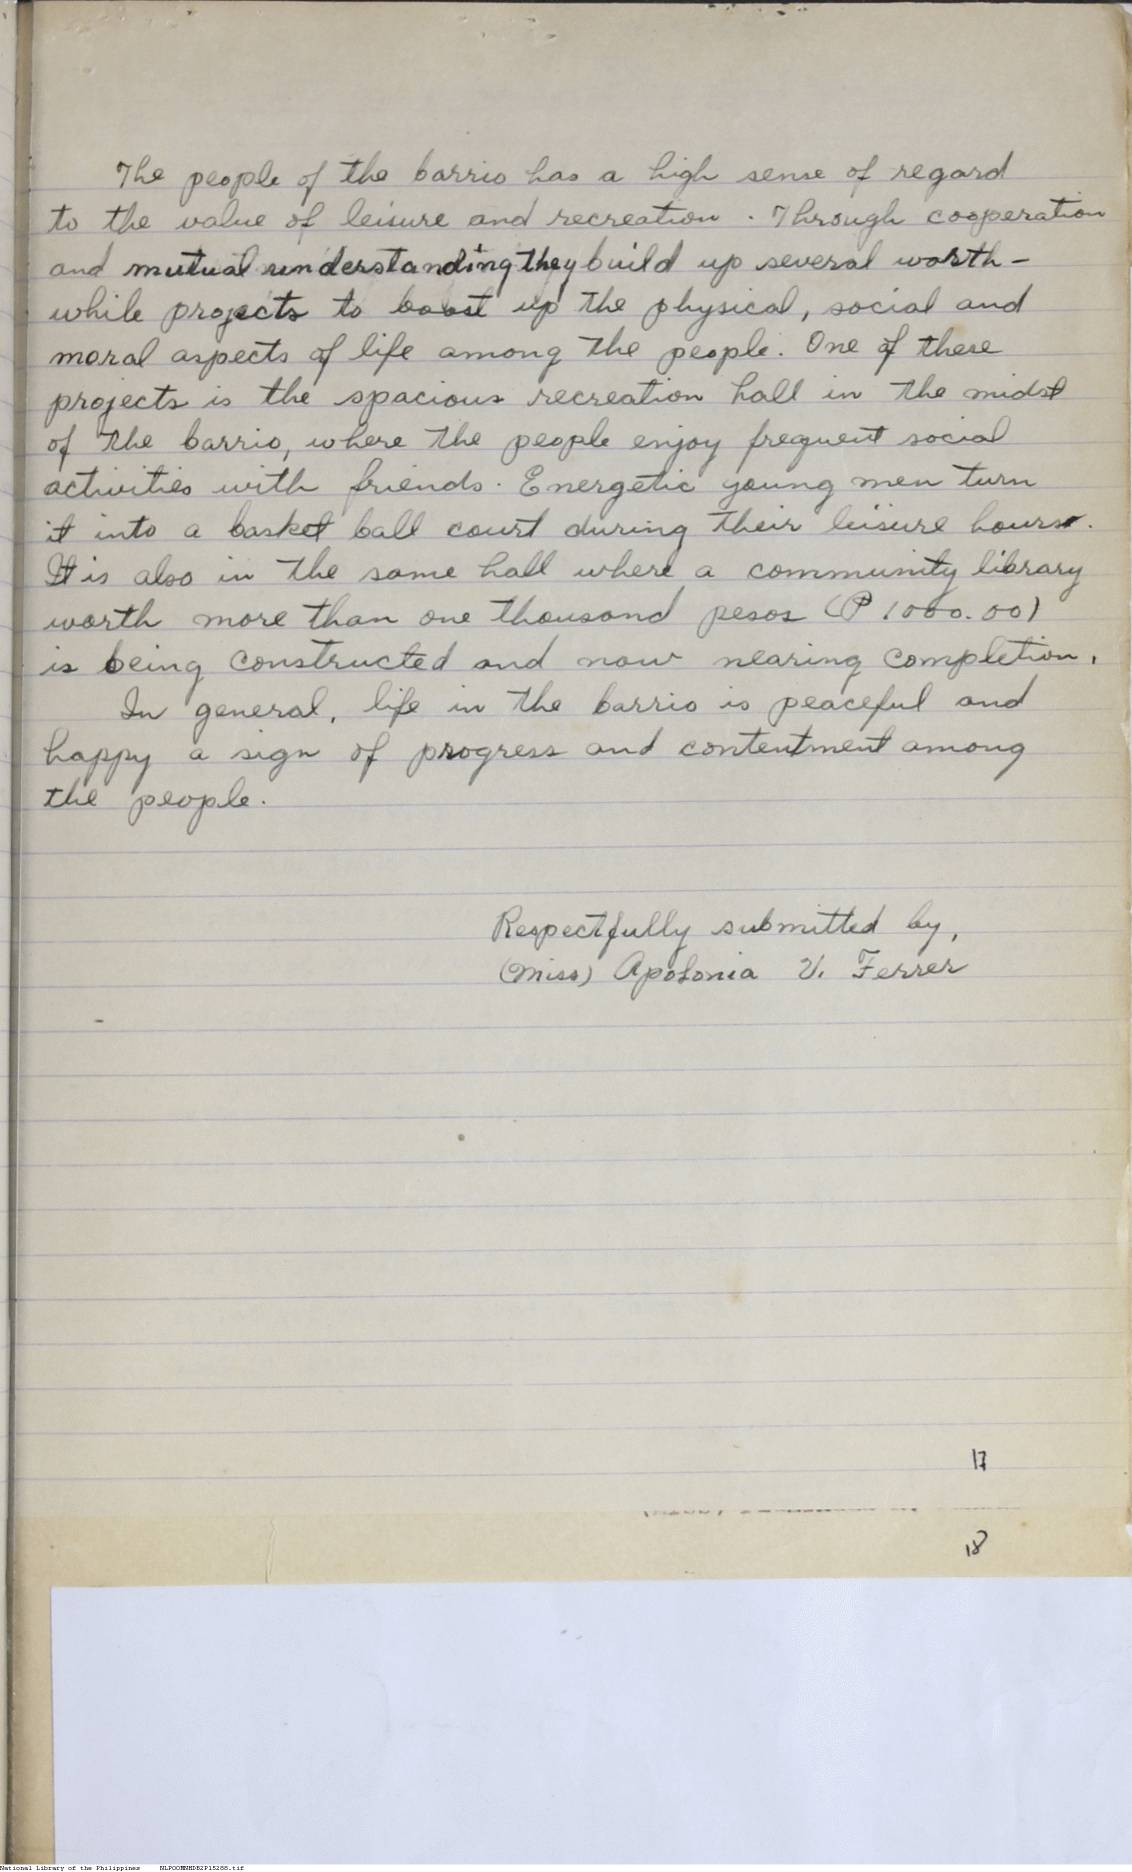 The people of the barrio has a high sense of regard
to the value of leisure and recreation. Through cooperation
and mutual understanding they build up several worth-
while projects to boost up the physical, social and
moral aspects of life among the people. One of these
projects is the spacious recreation hall in the midst
of the barrio, where the people enjoy frequent social
activities with friends. Energetic young men turn
it into a basket ball court during their leisure hours.
It is also in the same hall where a community library
worth more than one thousand pesos (₱ 1000.00)
is being constructed and now nearing completion.
In general, life in the barrio is peaceful and
happy a sign of progress and contentment among
the people.
Respectfully submitted by,
(Miss) Apolonia V. Ferrer
17
18
National Library of the Philippines NLPOOMNHDB2P15288.tif